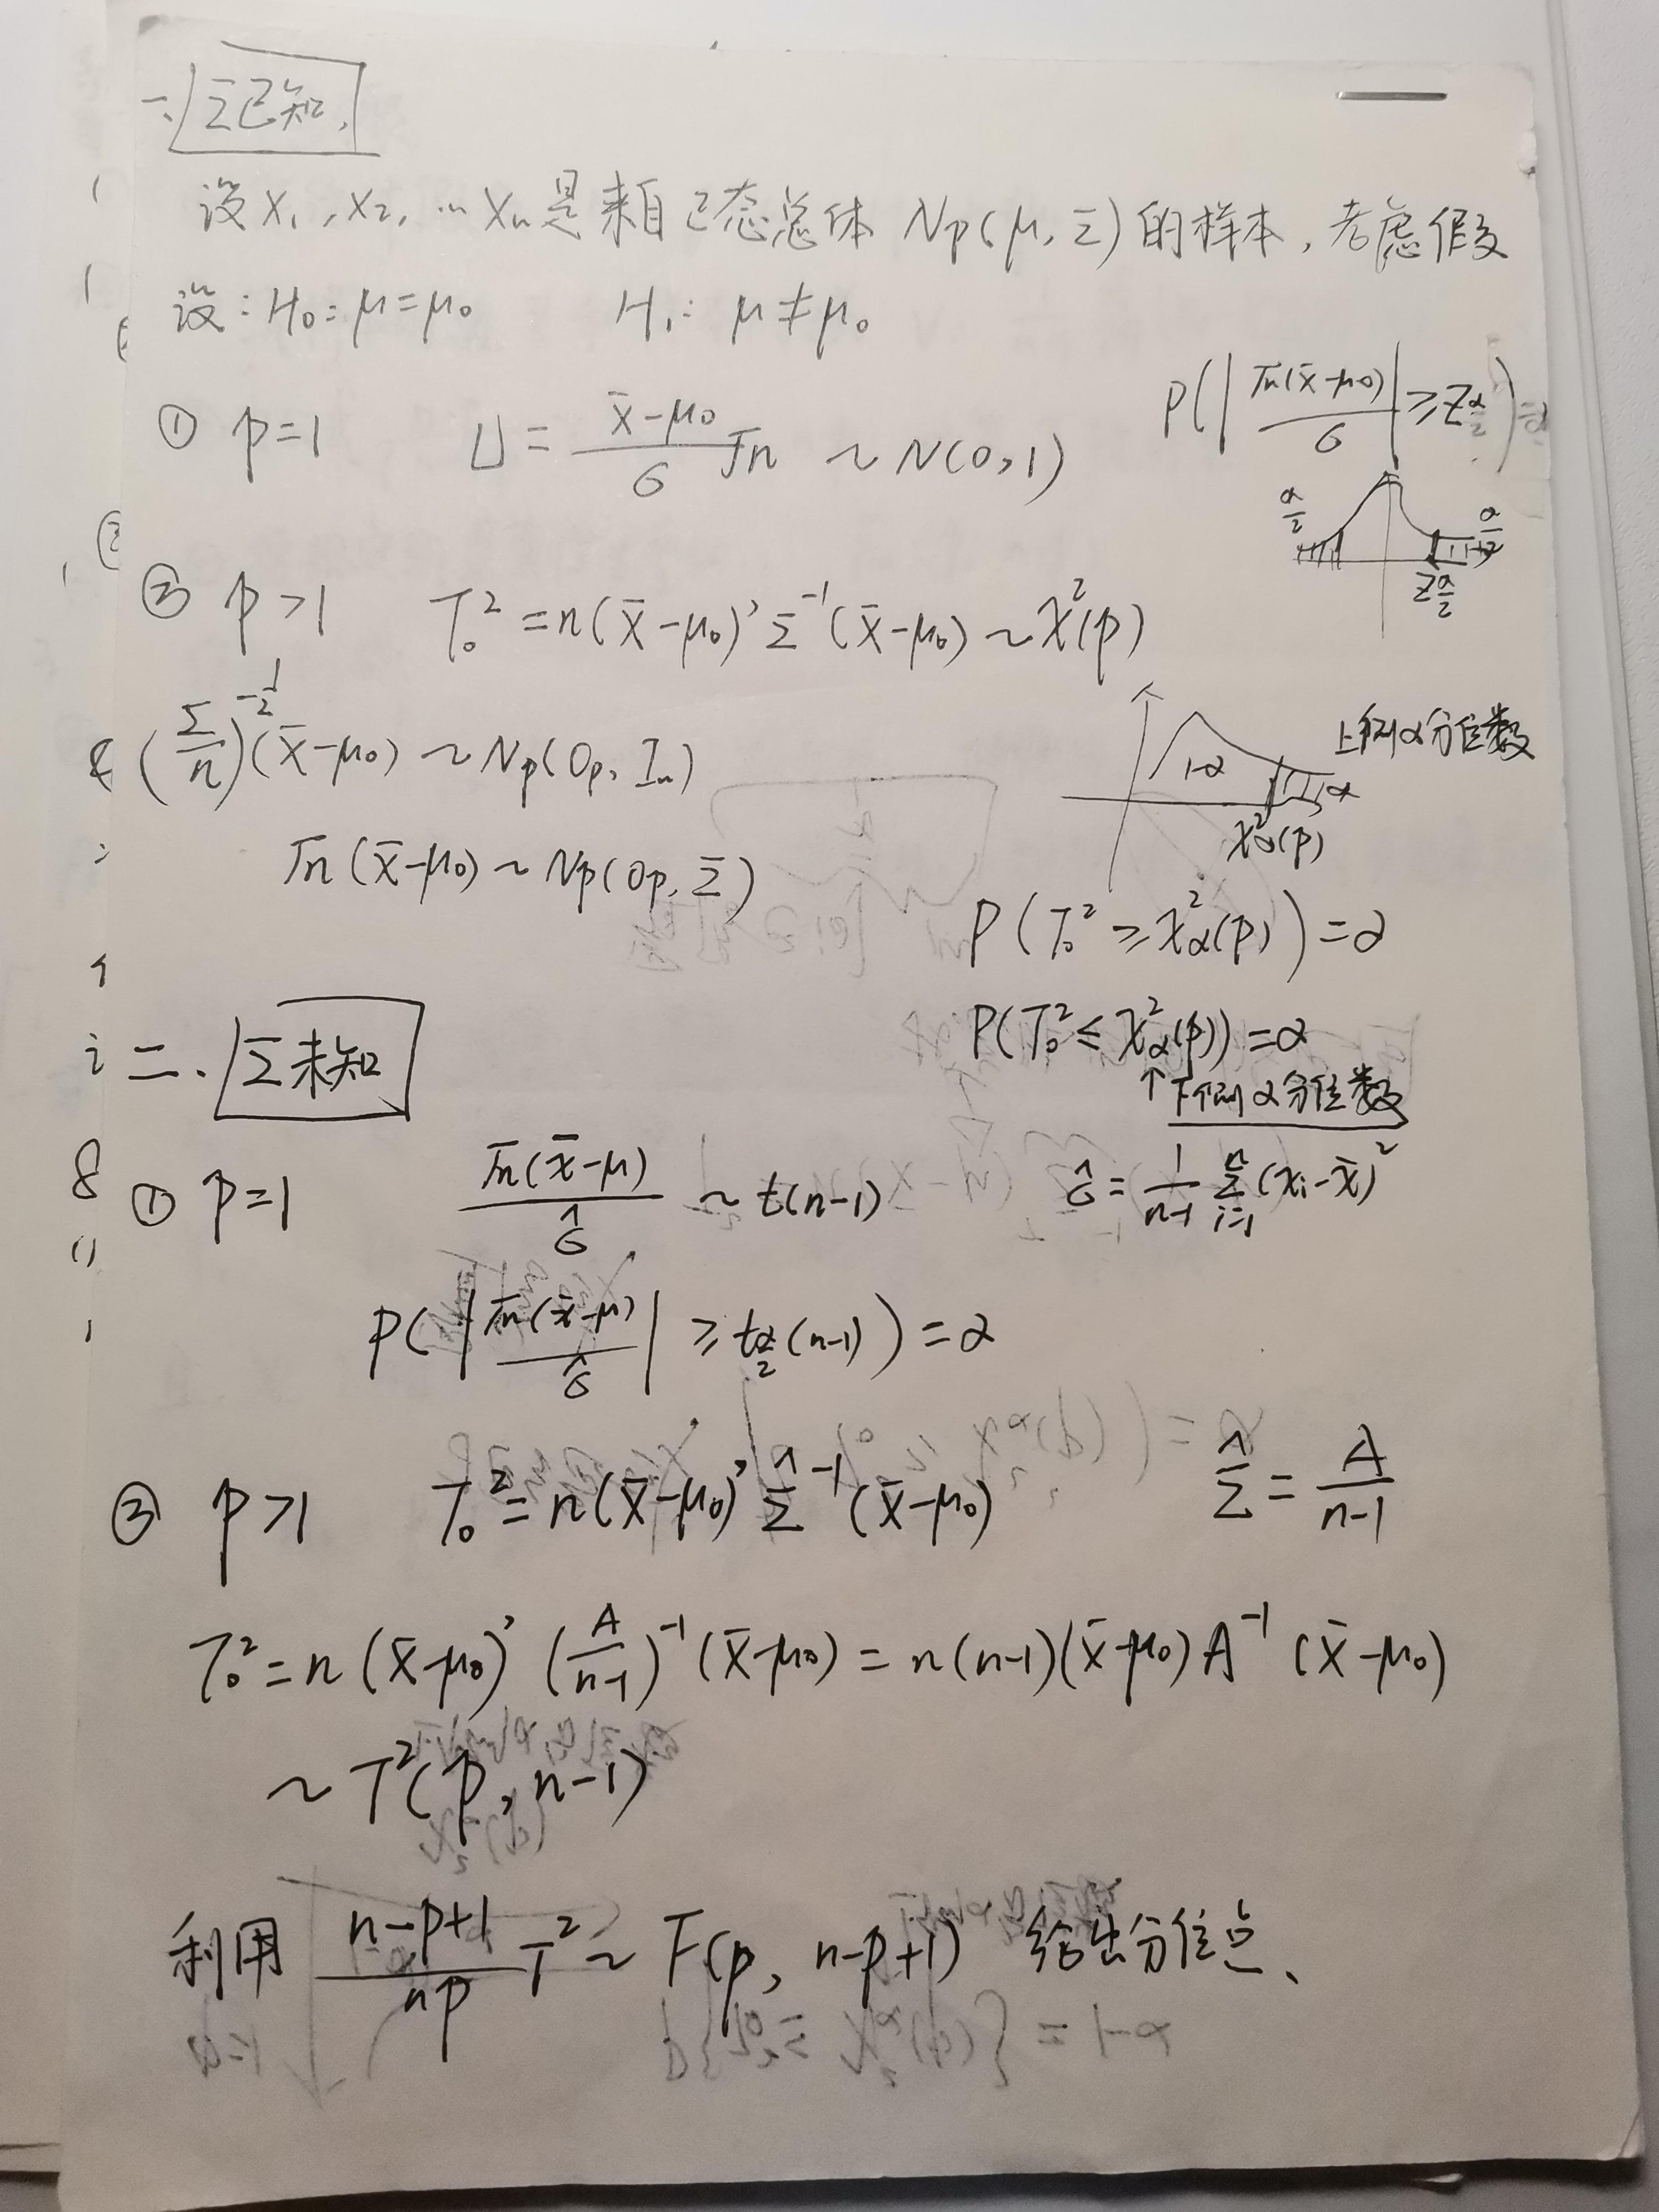 一、Σ已知,
设X₁,X₂,…Xn是来自正态总体 Np(μ,Σ)的样本,考虑假
设:H₀:μ=μ₀ H₁: μ≠μ₀
① p=1 U = (x̄-μ₀)/σ √n ~ N(0,1)
P(|√n(x̄-μ₀)/σ| ≥ Z_{α/2})=α
α/2 α/2
Z_{α/2}
② p>1 T₀² = n(x̄-μ₀)'Σ⁻¹(x̄-μ₀) ~ χ²(p)
(Σ/n)^{-1/2}(x̄-μ₀) ~ Np(0p, In)
上侧α分位数
1-α α
χ²α(p)
√n(x̄-μ₀) ~ Np(0p, Σ)
P(T₀² ≥ χ²α(p)) = α
P(T₀² ≤ χ²α(p)) = α
↑下侧α分位数
二、Σ未知
① p=1 √n(x̄-μ)/σ̂ ~ t(n-1) σ̂ = 1/(n-1) Σ_{i=1}^{n} (xi-x̄)²
P(|√n(x̄-μ)/σ̂| ≥ t_{α/2}(n-1)) = α
② p>1 T₀² = n(x̄-μ₀)'Σ̂⁻¹(x̄-μ₀) Σ̂ = A/(n-1)
T₀² = n(x̄-μ₀)'(A/(n-1))⁻¹(x̄-μ₀) = n(n-1)(x̄-μ₀)A⁻¹(x̄-μ₀)
~ T²(p, n-1)
利用 (n-p+1)/(np) T² ~ F(p, n-p+1) 给出分位点、